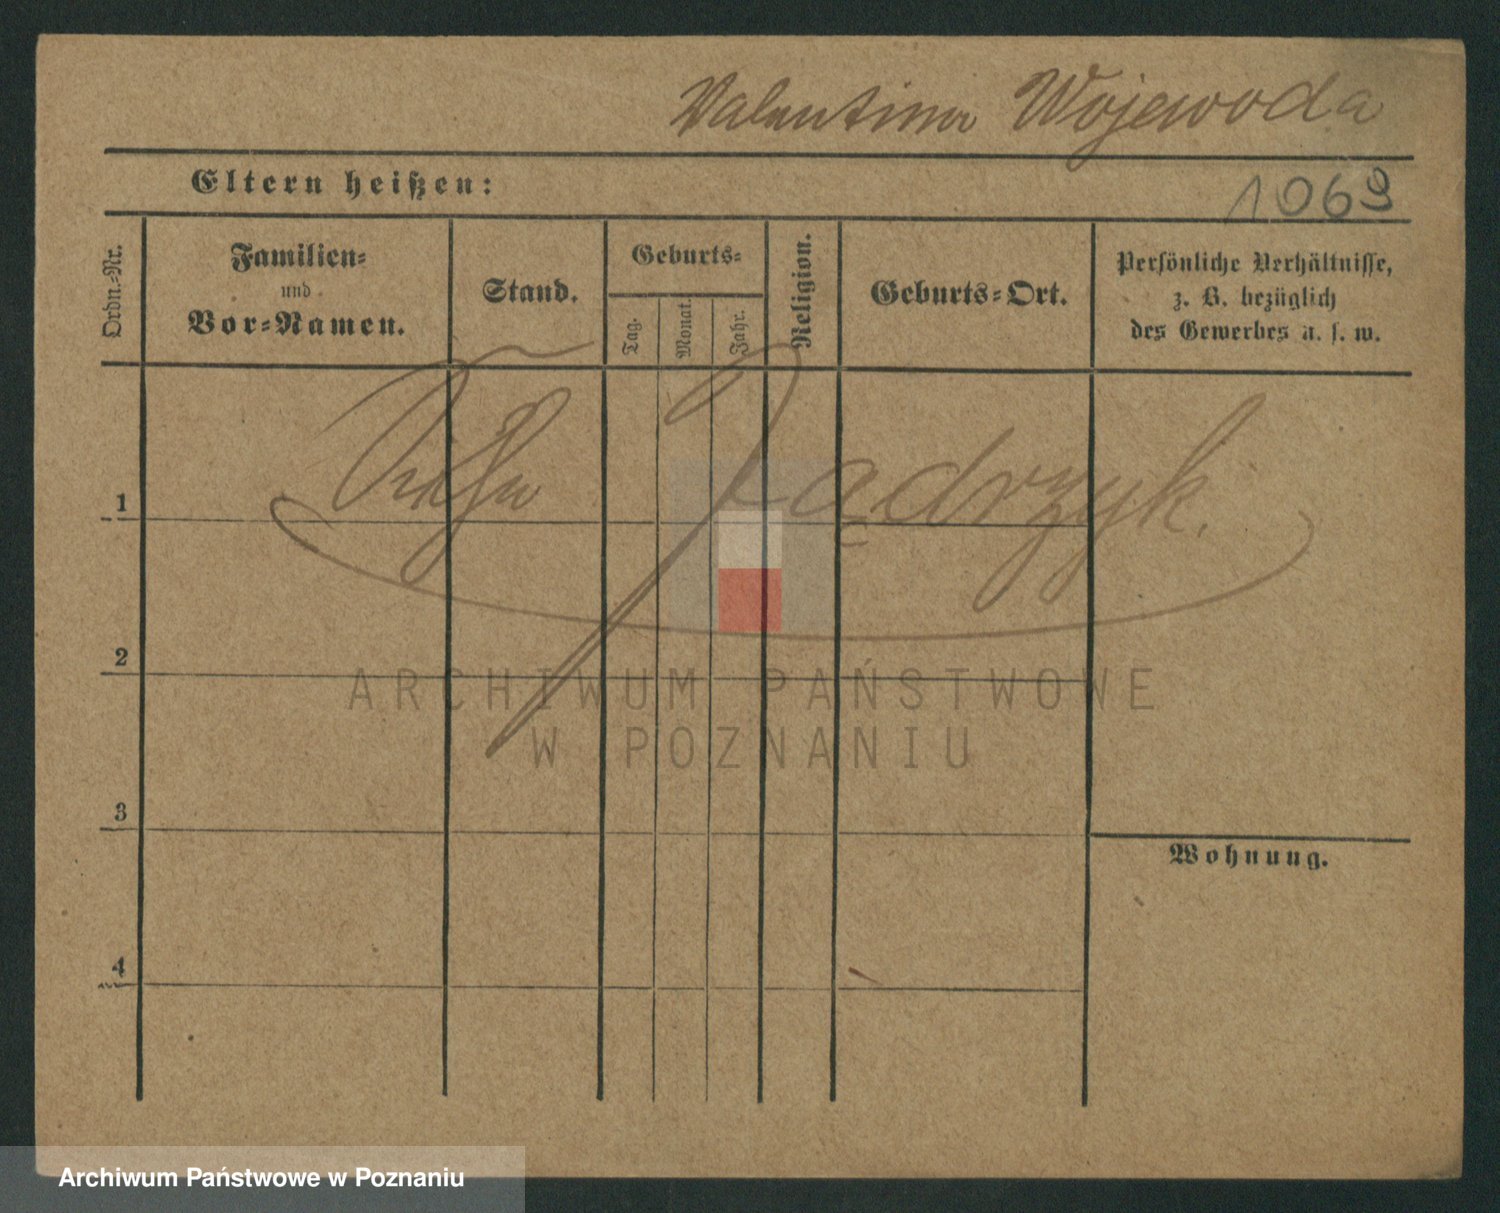 Valentina Wojewoda
Eltern heißen:
1069
Ordn.-Nr.
Familien-
und
Vor-Namen.
Stand.
Geburts-
Tag.
Monat.
Jahr.
Religion.
Geburts-Ort.
Persönliche Verhältnisse,
z. B. bezüglich
des Gewerbes u. s. w.
Siehe Jądrzyk.
1
2
3
4
Wohnung.
ARCHIWUM PAŃSTWOWE
W POZNANIU
Archiwum Państwowe w Poznaniu